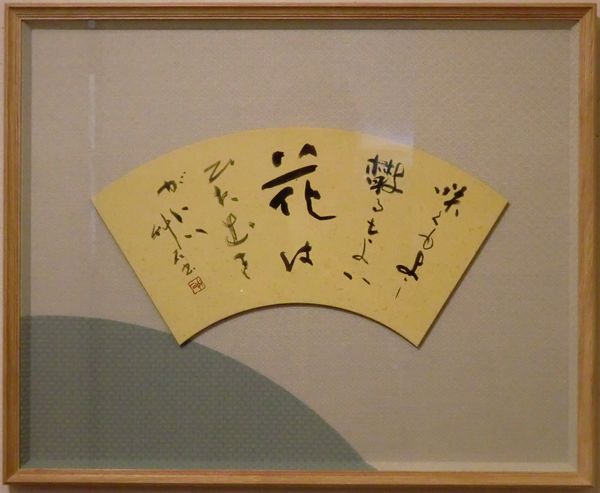 咲くもよし
散るもよい
花は
ひたむき
がいい